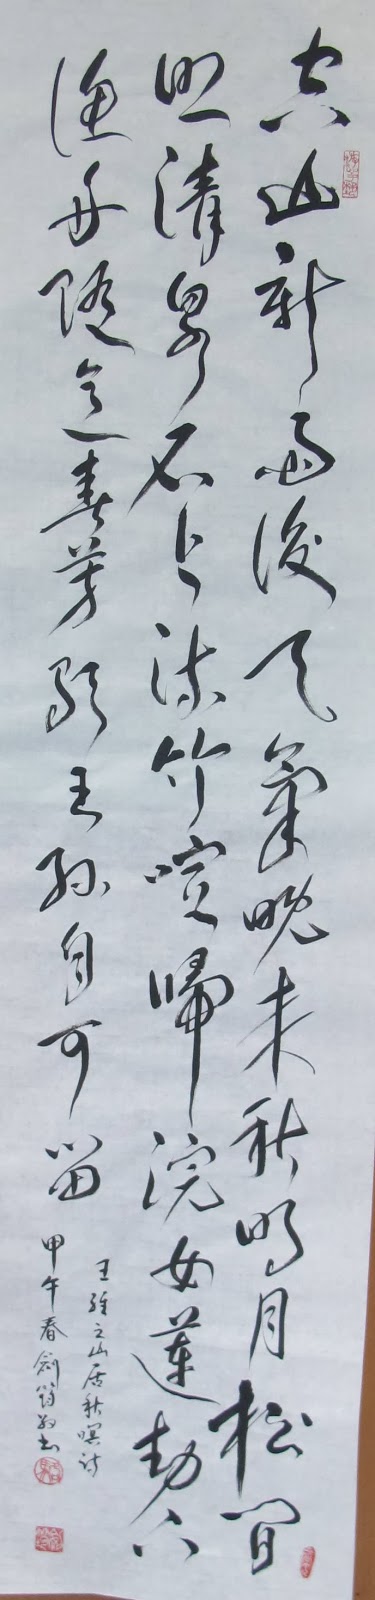 空山新雨後天氣晚來秋明月松間
照清泉石上流竹喧歸浣女蓮動下
漁舟隨意春芳歇王孫自可留
王維之山居秋暝詩
甲午春劍書